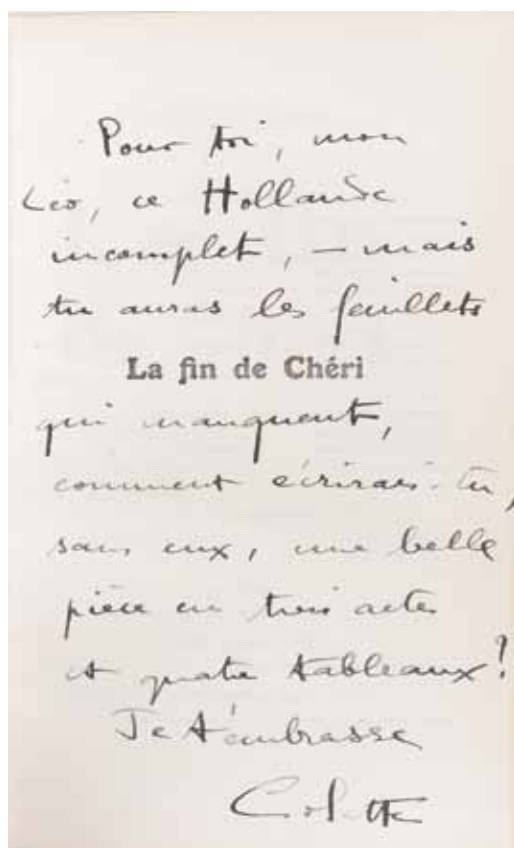 Pour toi, mon
Léo, ce Hollande
incomplet, – mais
tu auras les feuillets
La fin de Chéri
qui manquent,
comment écrirais-tu,
sans eux, une belle
pièce en trois actes
et quatre tableaux?
Je t'embrasse
Colette